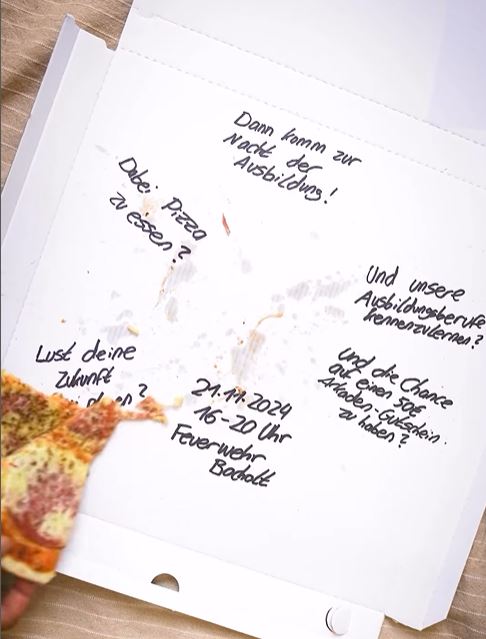 Dann komm zur
Nacht der
Ausbildung!
Dabei Pizza
zu essen?
Und unsere
Ausbildungsberufe
kennenzulernen?
Lust deine
Zukunft
und die Chance
auf einen 50€
Arkaden-Gutschein
zu haben?
21.11.2024
16-20 Uhr
Feuerwehr
Bocholt